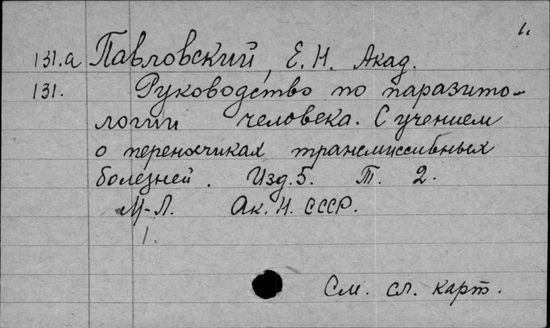 1.
131.a Павловский, Е.Н. Акад.
131. Руководство по паразито-
логии человека. С учением
о переносчиках трансмиссивных
болезней. Изд.5. Т. 2.
М-Л. Ак.Н. СССР.
1.
См. сл. карт.